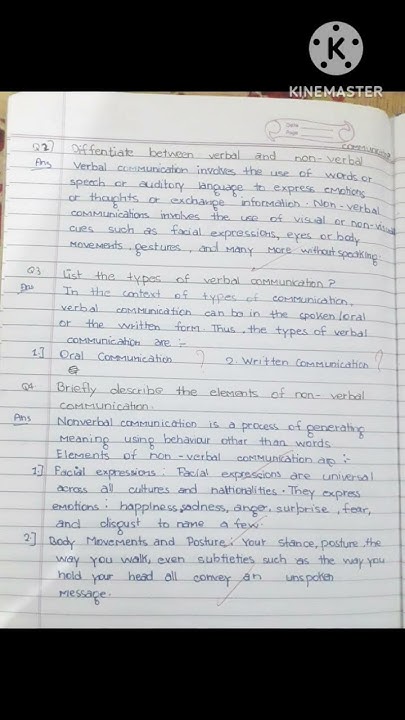 KINEMASTER
Date
Page
Q2] Diffentiate between verbal and non-verbal communication
Ans Verbal communication involves the use of words or
speech or auditory language to express emotions
or thoughts or exchange information. Non-verbal
communications involves the use of visual or non-visual
cues such as facial expressions, eyes or body
movements, gestures, and many more without speaking.
Q3 List the types of verbal communication?
Ans In the context of types of communication,
verbal communication can be in the spoken/oral
or the written form. Thus, the types of verbal
communication are :-
1.] Oral Communication ? 2. Written Communication ?
Q4 Briefly describe the elements of non-verbal
communication.
Ans Nonverbal communication is a process of generating
meaning using behaviour other than words.
Elements of non-verbal communication are :-
1.] Facial expressions: Facial expressions are universal
across all cultures and nathionalities. They express
emotions: happiness, sadness, anger, surprise, fear,
and disgust to name a few.
2.] Body Movements and Posture: Your stance, posture, the
way you walk, even subtleties such as the way you
hold your head all convey an unspoken
message.